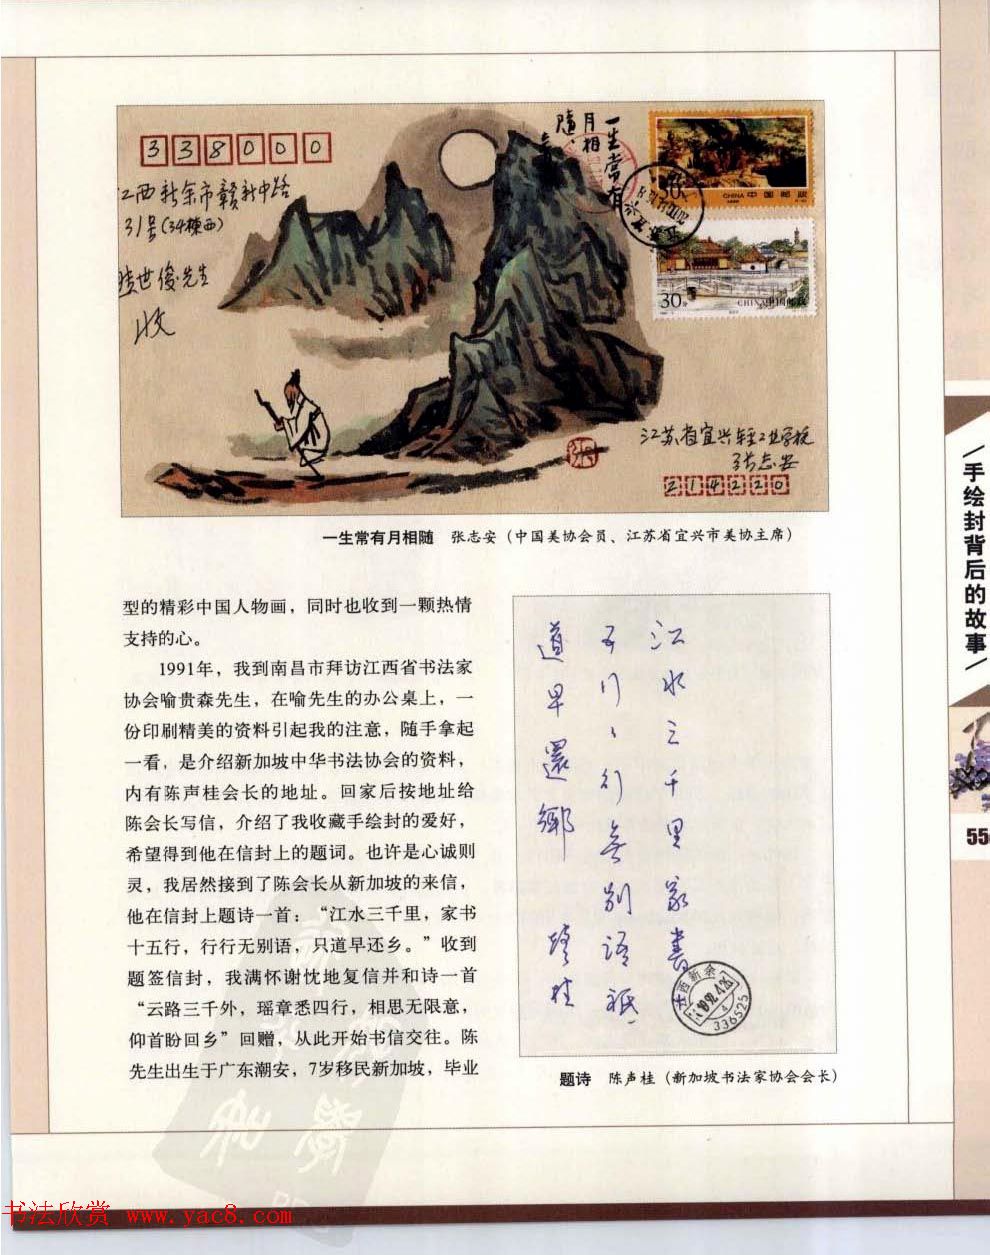 338000
江西新余市赣新中路
31号(34棟西)
世俊先生
收
一生常有
月相
隨
30
CHINA 中国邮政
30
CHINA中国邮政
江苏省宜兴轻工业学校
张志安
214220
一生常有月相随 张志安（中国美协会员、江苏省宜兴市美协主席）
型的精彩中国人物画，同时也收到一颗热情
支持的心。
1991年，我到南昌市拜访江西省书法家
协会喻贵森先生，在喻先生的办公桌上，一
份印刷精美的资料引起我的注意，随手拿起
一看，是介绍新加坡中华书法协会的资料，
内有陈声桂会长的地址。回家后按地址给
陈会长写信，介绍了我收藏手绘封的爱好，
希望得到他在信封上的题词。也许是心诚则
灵，我居然接到了陈会长从新加坡的来信，
他在信封上题诗一首：“江水三千里，家书
十五行，行行无别语，只道早还乡。”收到
题签信封，我满怀谢忱地复信并和诗一首
“云路三千外，瑶章悉四行，相思无限意，
仰首盼回乡”回赠，从此开始书信交往。陈
先生出生于广东潮安，7岁移民新加坡，毕业
江水三千里家書
十五行行行無別語祗
道早還鄉 聲桂
江西新余
336525
题诗 陈声桂（新加坡书法家协会会长）
手绘封背后的故事
55
书法欣赏 www.yac8.com